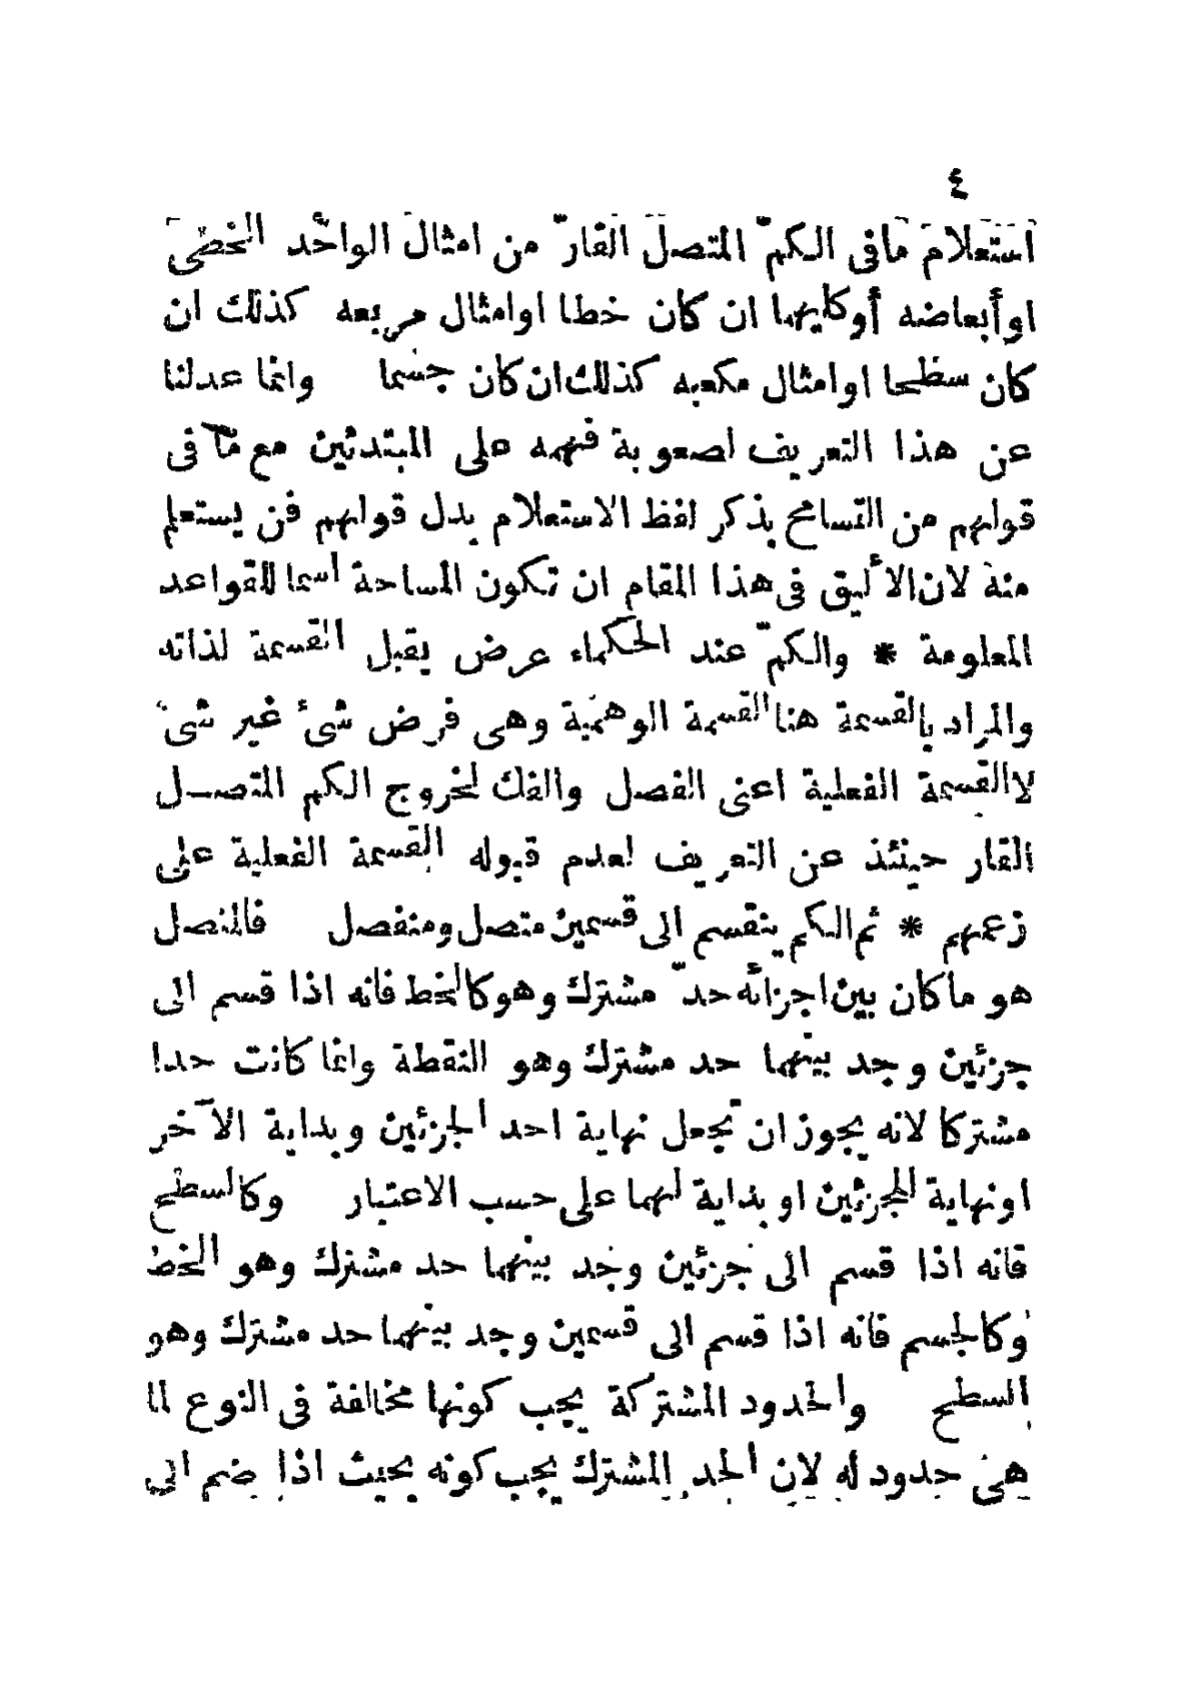 ٤
استعلام مافى الكمّ المتصل القارّ من امثال الواحد الخطى
او أبعاضه أوكليهما ان كان خطا او امثال مربعه كذلك ان
كان سطحا او امثال مكعبه كذلك ان كان جسما وانما عدلنا
عن هذا التعريف لصعوبة فهمه على المبتدئين مع مافى
قولهم من التسامح بذكر لفظ الاستعلام بدل قولهم فن يستعلم
منه لان الأليق فى هذا المقام ان تكون المساحة اسما للقواعد
المعلومة * والكمّ عند الحكماء عرض يقبل القسمة لذاته
والمراد بالقسمة هنا القسمة الوهمية وهى فرض شئ غير شئ
لا القسمة الفعلية اعنى الفصل والفك لخروج الكم المتصـل
القار حينئذ عن التعريف لعدم قبوله القسمة الفعلية على
زعمهم * ثم الكم ينقسم الى قسمين متصل ومنفصل فالمتصل
هو ما كان بين اجزائه حدّ مشترك وهو كالخط فانه اذا قسم الى
جزئين وجد بينهما حد مشترك وهو النقطة وانما كانت حدا
مشتركا لانه يجوز ان تجعل نهاية احد الجزئين وبداية الآخر
او نهاية للجزئين او بداية لهما على حسب الاعتبار وكالسطح
فانه اذا قسم الى جزئين وجد بينهما حد مشترك وهو الخط
وكالجسم فانه اذا قسم الى قسمين وجد بينهما حد مشترك وهو
السطح والحدود المشتركة يجب كونها مخالفة فى النوع لما
هى حدود له لان الحد المشترك يجب كونه بحيث اذا ضم الى